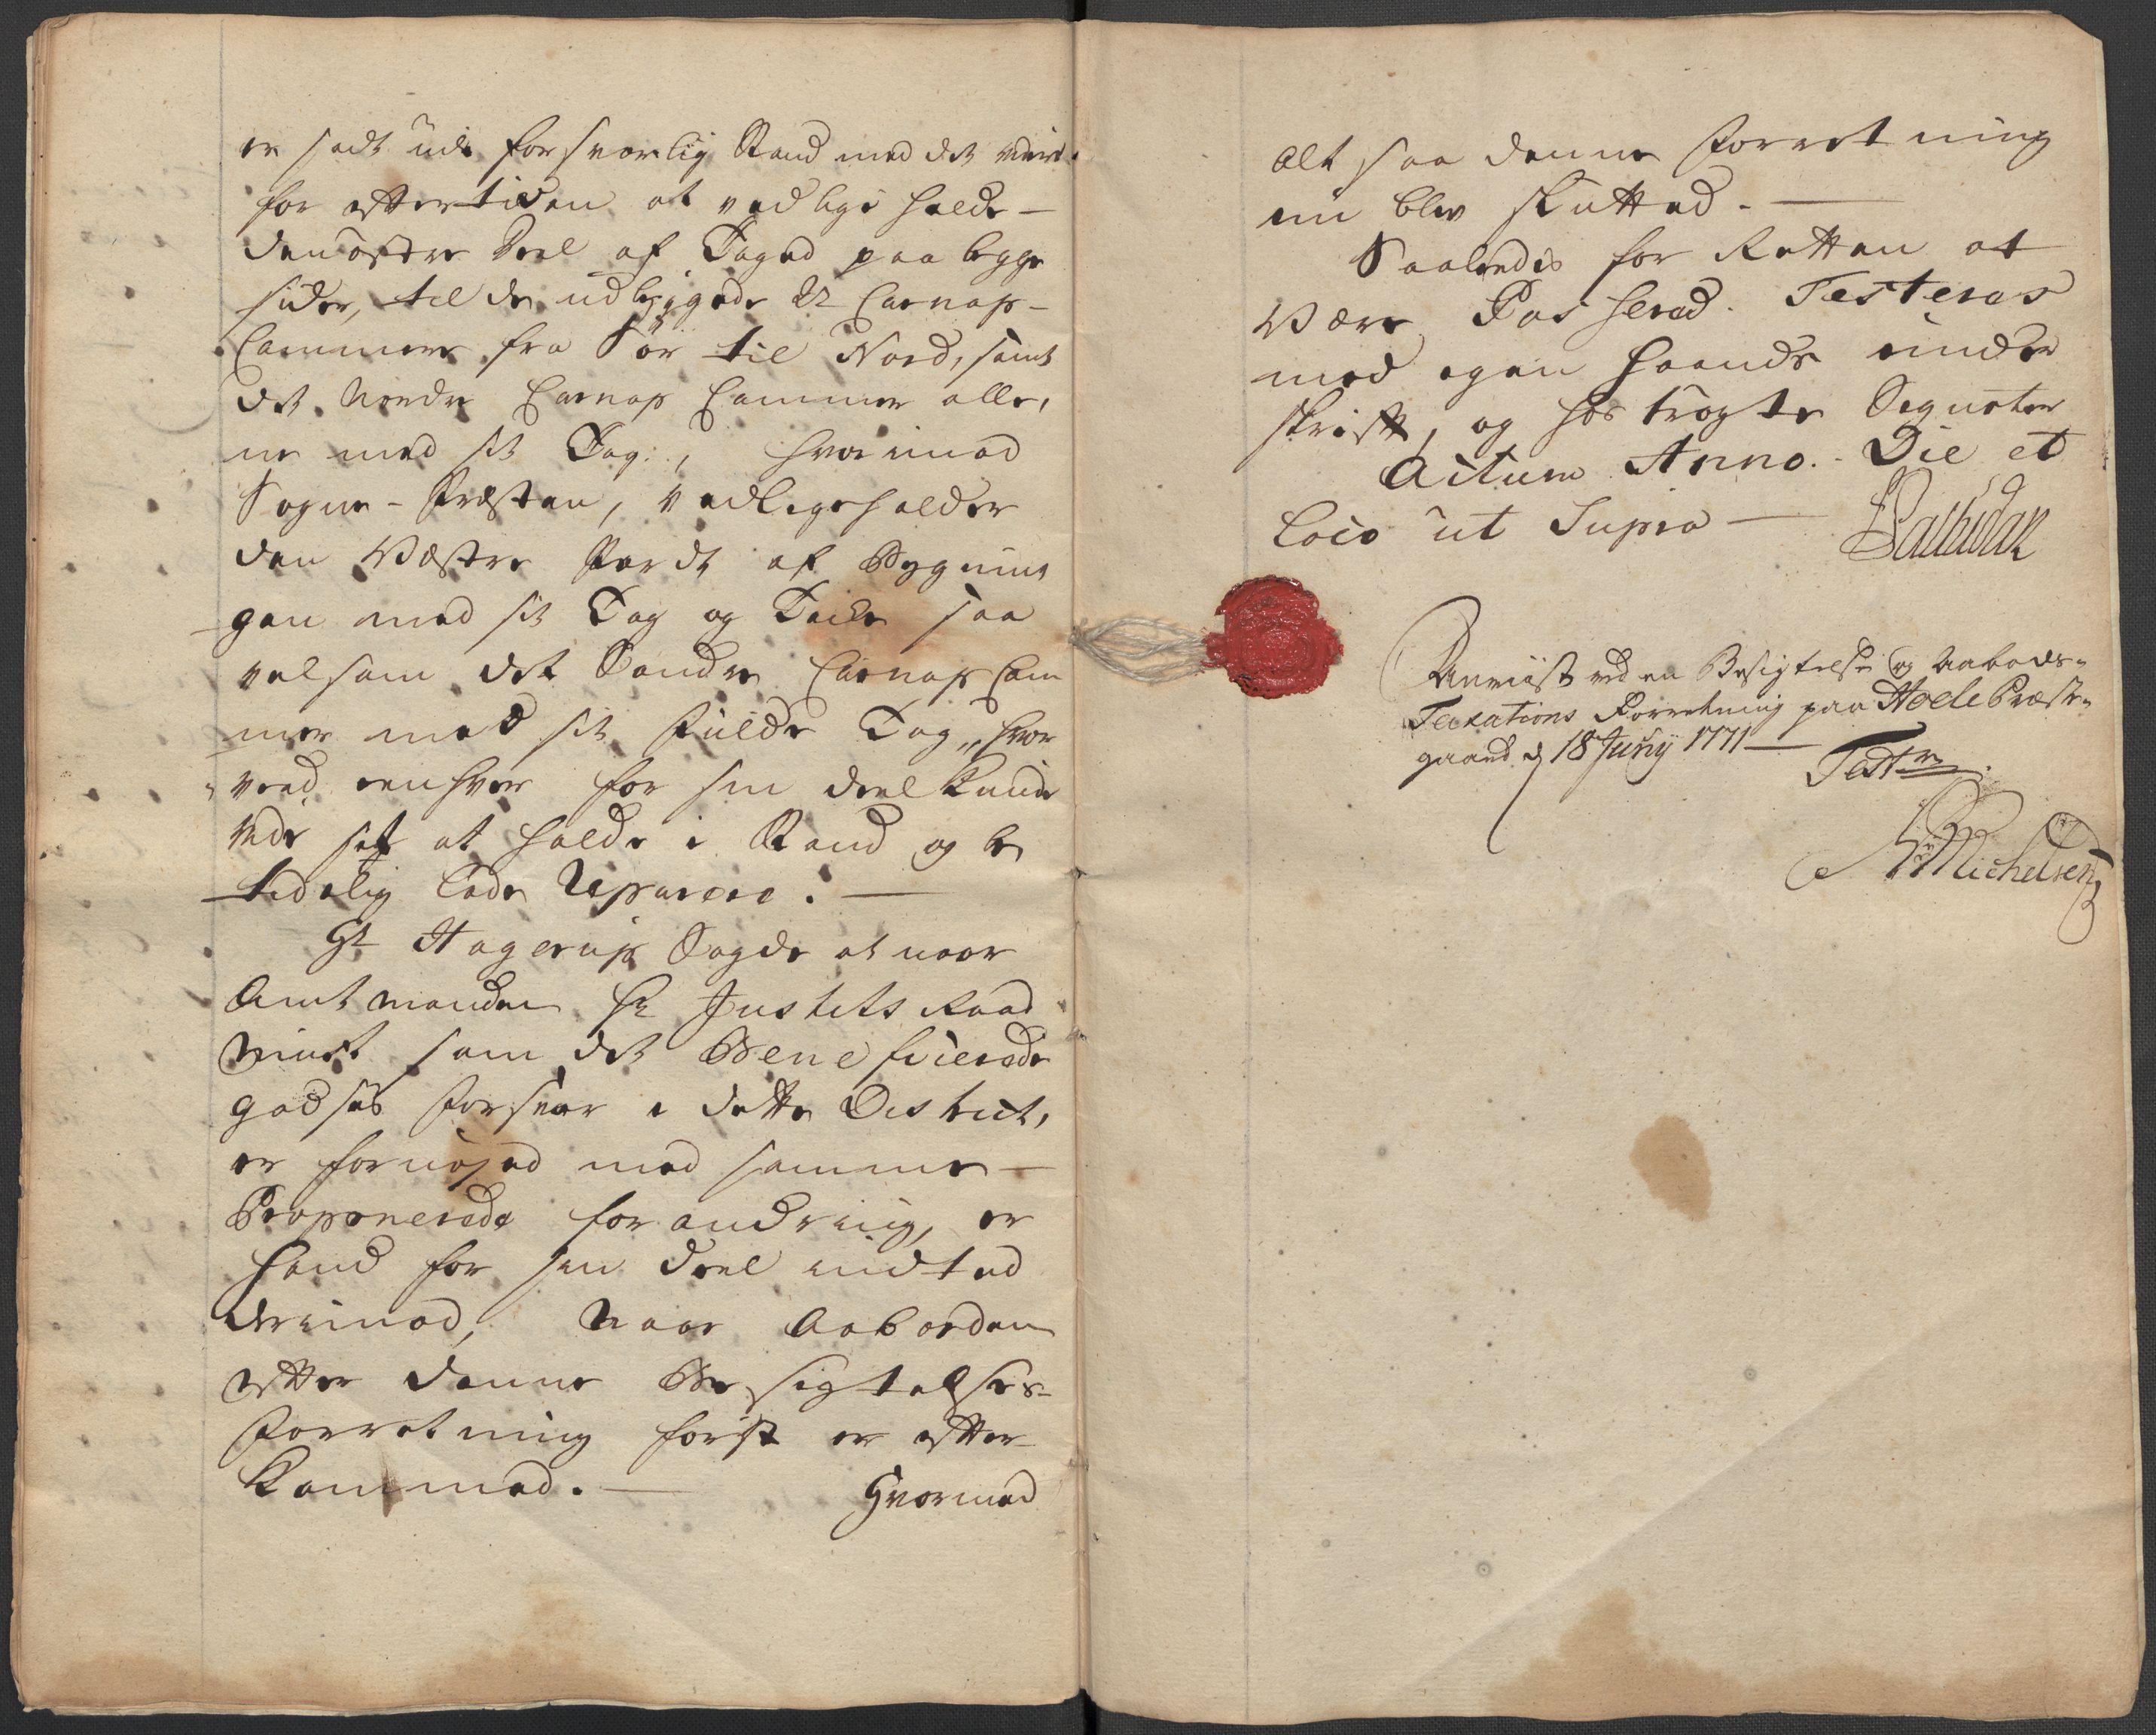 er sadt udi forsvarlig Stand med det videre
for eftertiden at vedlige holde –
den østre Deel af Taged paa begge
sider, til de udbygede 2de Carnap –
Cammere fra Sør til Nord, samt
det Nordre Carnap Cammer alle,
ne med sit Tag, hvorimod
Sogne-Præsten, vedligeholder
den Væstre Pardt af Bygnin
gen med sit Tag og Teile saa
velsom det Søndre Carnap Cam
mer med sit fulde Tag, hvor
ved eenhver for sin deel kunde
vide sit at holde i Stand og be
tidelig lade Reparere. –
Hr Hagerup Sagde at naar
Amtmanden Hr Justits Raad
som det Beneficerede
godses Forsvar i dette District,
er fornøyed med samme –
Proponerede forandring, er
hand for sin deel indted
derimod, Naar Aaboeden
efter denne Besigtelses-
Forretning først er efter
kommed. – Hvormed
Alt saa denne Forretning
nu blev slutted. –
Saaledes for Retten at
Være Passered. Testeres
med egen haands under
skrift, og hostrøgte Signeter
Actum Anno. Die et
Loco ut Supra –
Paludan
Anviist ved en Besigtelse og Aaboeds-
Taxations Forretning paa Hoele Præste-
gaard d 18 Junij 1771 –
Test
Michelsen